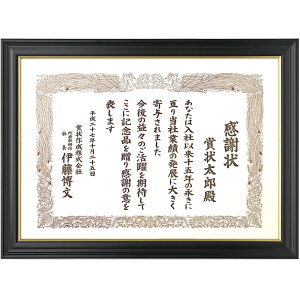 感謝状
賞状太郎殿
あなたは入社以来十五年の永きに
亘り当社業績の発展に大きく
寄与されました
今後の益々のご活躍を期待して
ここに記念品を贈り感謝の意を
表します
平成二十七年十月二十五日
賞状作成株式会社
代表取締役
社長 伊藤博文